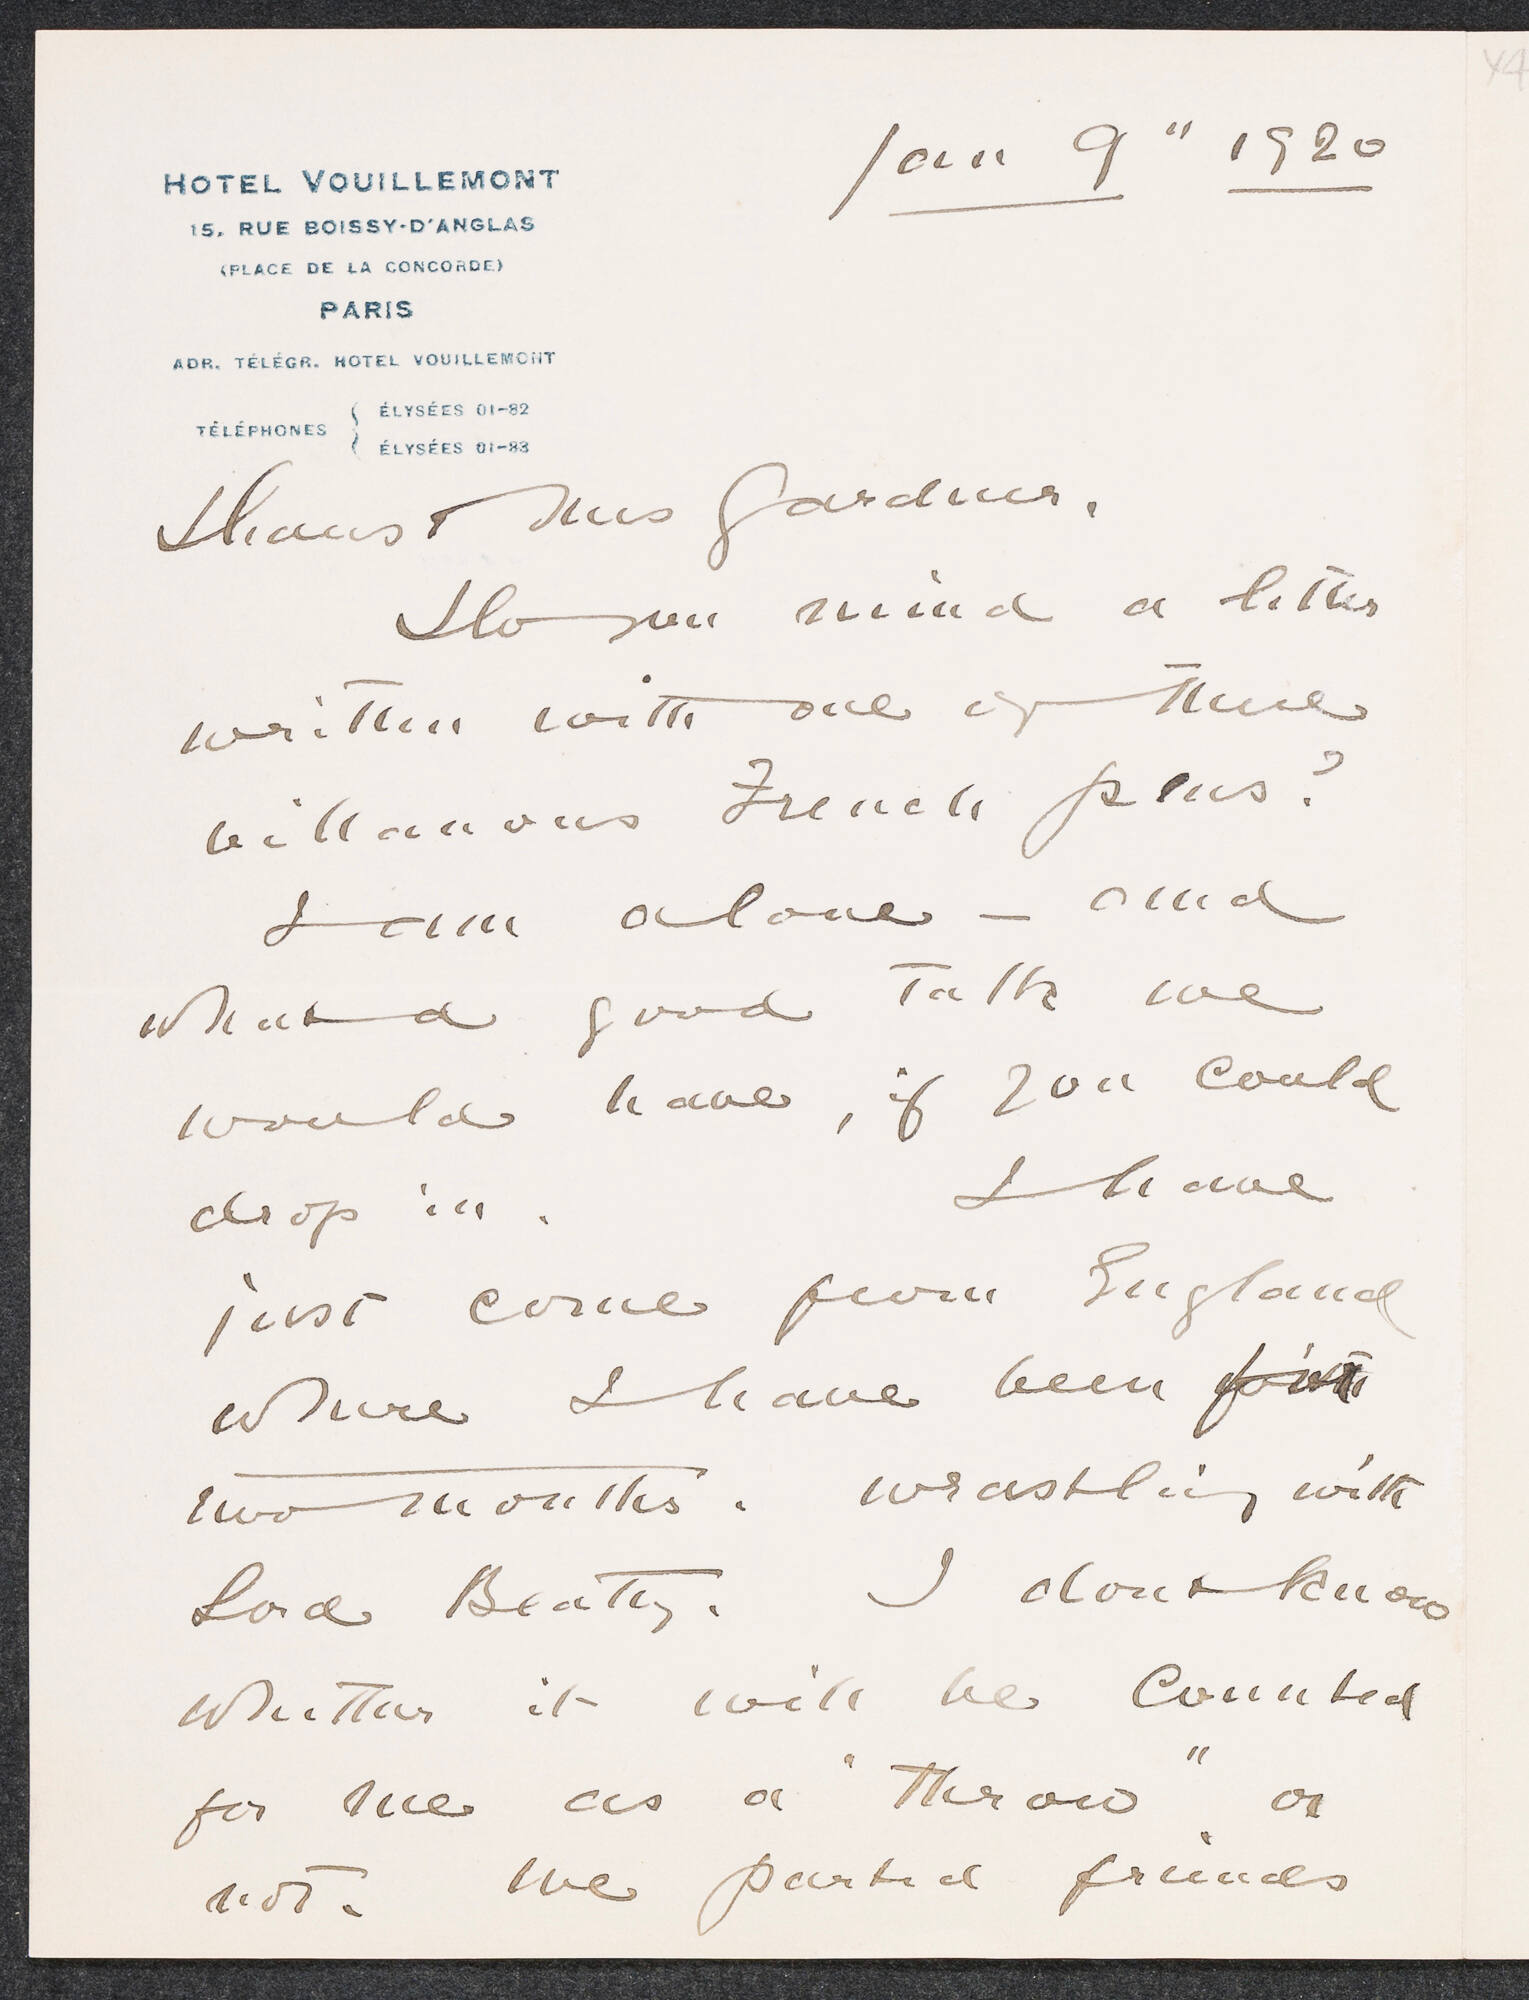 Jan 9" 1920
HOTEL VOUILLEMONT
15, RUE BOISSY-D'ANGLAS
(PLACE DE LA CONCORDE)
PARIS
ADR. TÉLÉGR. HOTEL VOUILLEMONT
TÉLÉPHONES { ÉLYSÉES 01-82
ÉLYSÉES 01-83
Dearest Mrs Gardner.
Do you mind a letter
written with one of these
villanous French pens?
I am alone – and
what a good talk we
would have, if you could
drop in. I have
just come from England
where I have been
two months. wrastling with
Lord Beatty. I dont know
whether it will be counted
for me as a "throw" or
not. We parted friends